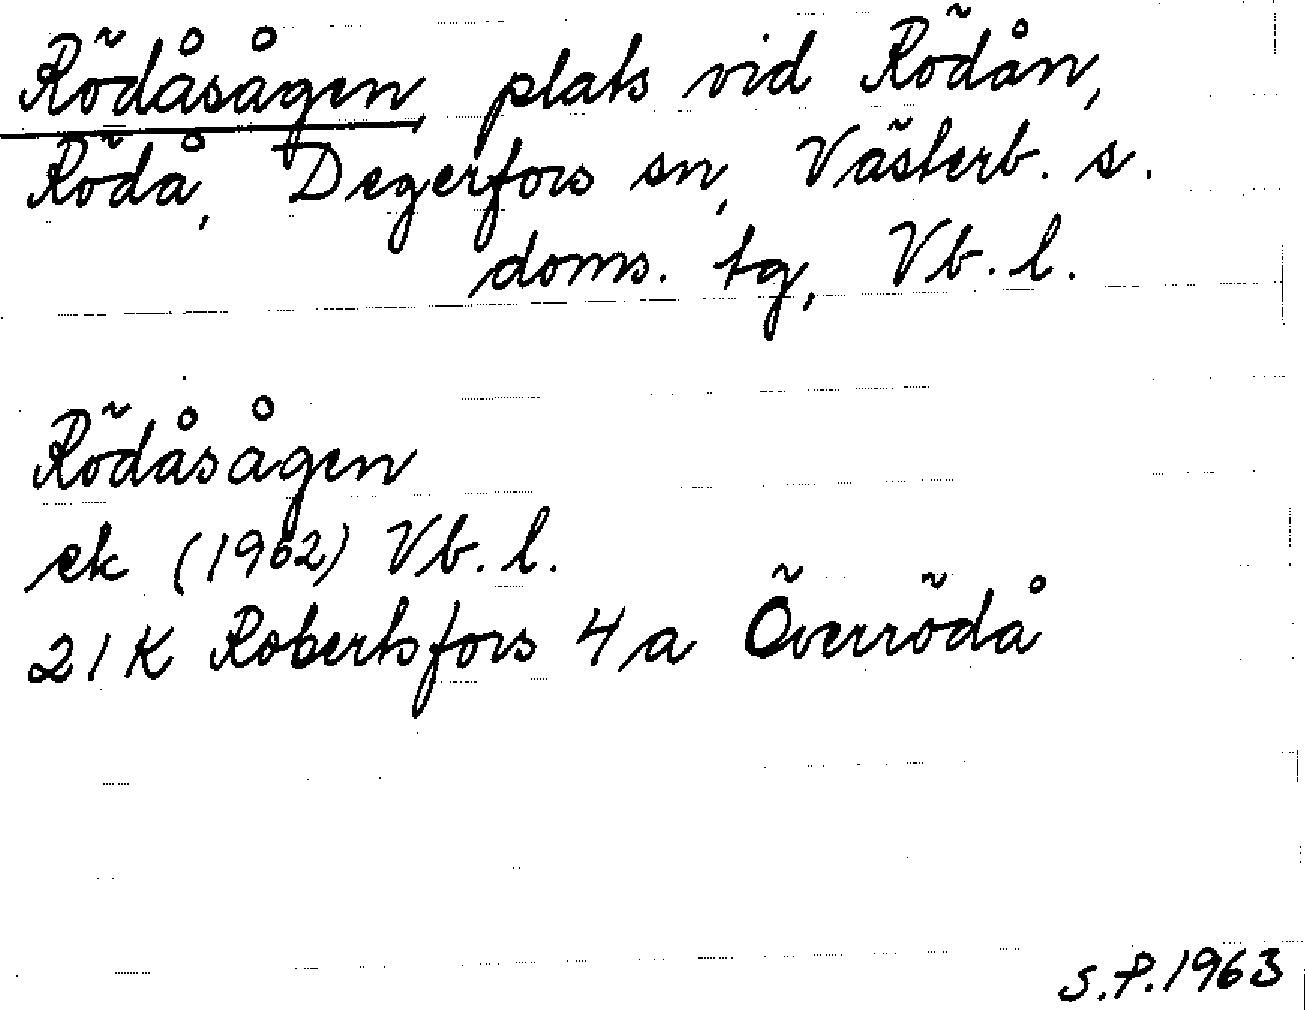 Rödåsågen, plats vid Rödån,
Rödå, Degerfors sn, Västerb. s.
doms. tg, Vb. l.
Rödåsågen
ek (1962) Vb. l.
21 K Robertsfors 4 a Överrödå
S.P. 1963